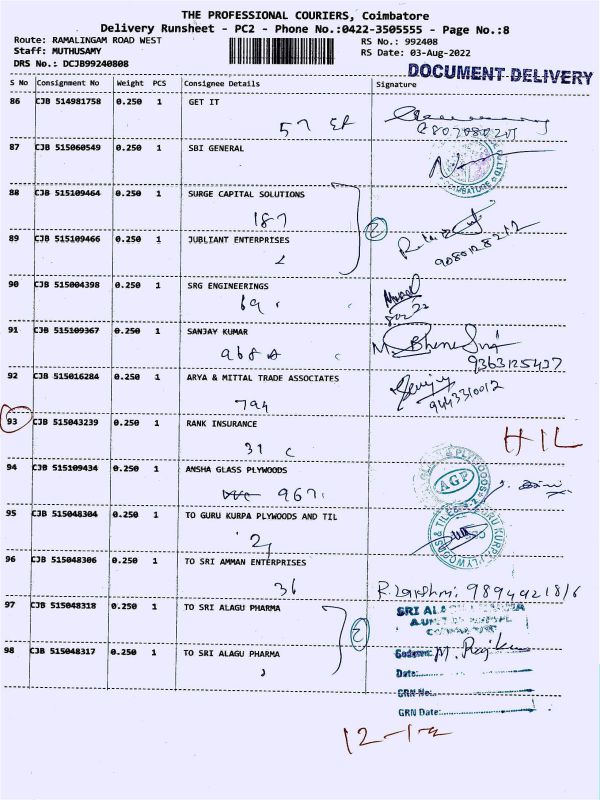 THE PROFESSIONAL COURIERS, Coimbatore
Delivery Runsheet - PC2 - Phone No.:0422-3505555 - Page No.:8
Route: RAMALINGAM ROAD WEST
RS No.: 992408
Staff: MUTHUSAMY
RS Date: 03-Aug-2022
DRS No.: DCJB99240808
DOCUMENT DELIVERY
S No Consignment No Weight PCS Consignee Details Signature
86 CJB 514981758 0.250 1 GET IT
57
87 CJB 515060549 0.250 1 SBI GENERAL
88 CJB 515109464 0.250 1 SURGE CAPITAL SOLUTIONS
187
2
89 CJB 515109466 0.250 1 JUBLIANT ENTERPRISES
9080128212
90 CJB 515004398 0.250 1 SRG ENGINEERINGS
69
91 CJB 515109367 0.250 1 SANJAY KUMAR
968
9363125437
92 CJB 515016284 0.250 1 ARYA & MITTAL TRADE ASSOCIATES
794
9443310012
93 CJB 515043239 0.250 1 RANK INSURANCE
31 c
HIL
94 CJB 515109434 0.250 1 ANSHA GLASS PLYWOODS
967
AGP
95 CJB 515048304 0.250 1 TO GURU KURPA PLYWOODS AND TIL
2
96 CJB 515048306 0.250 1 TO SRI AMMAN ENTERPRISES
36
R. Lakshmi
97 CJB 515048318 0.250 1 TO SRI ALAGU PHARMA
2
98 CJB 515048317 0.250 1 TO SRI ALAGU PHARMA
Date:
GRN No.
GRN Date: